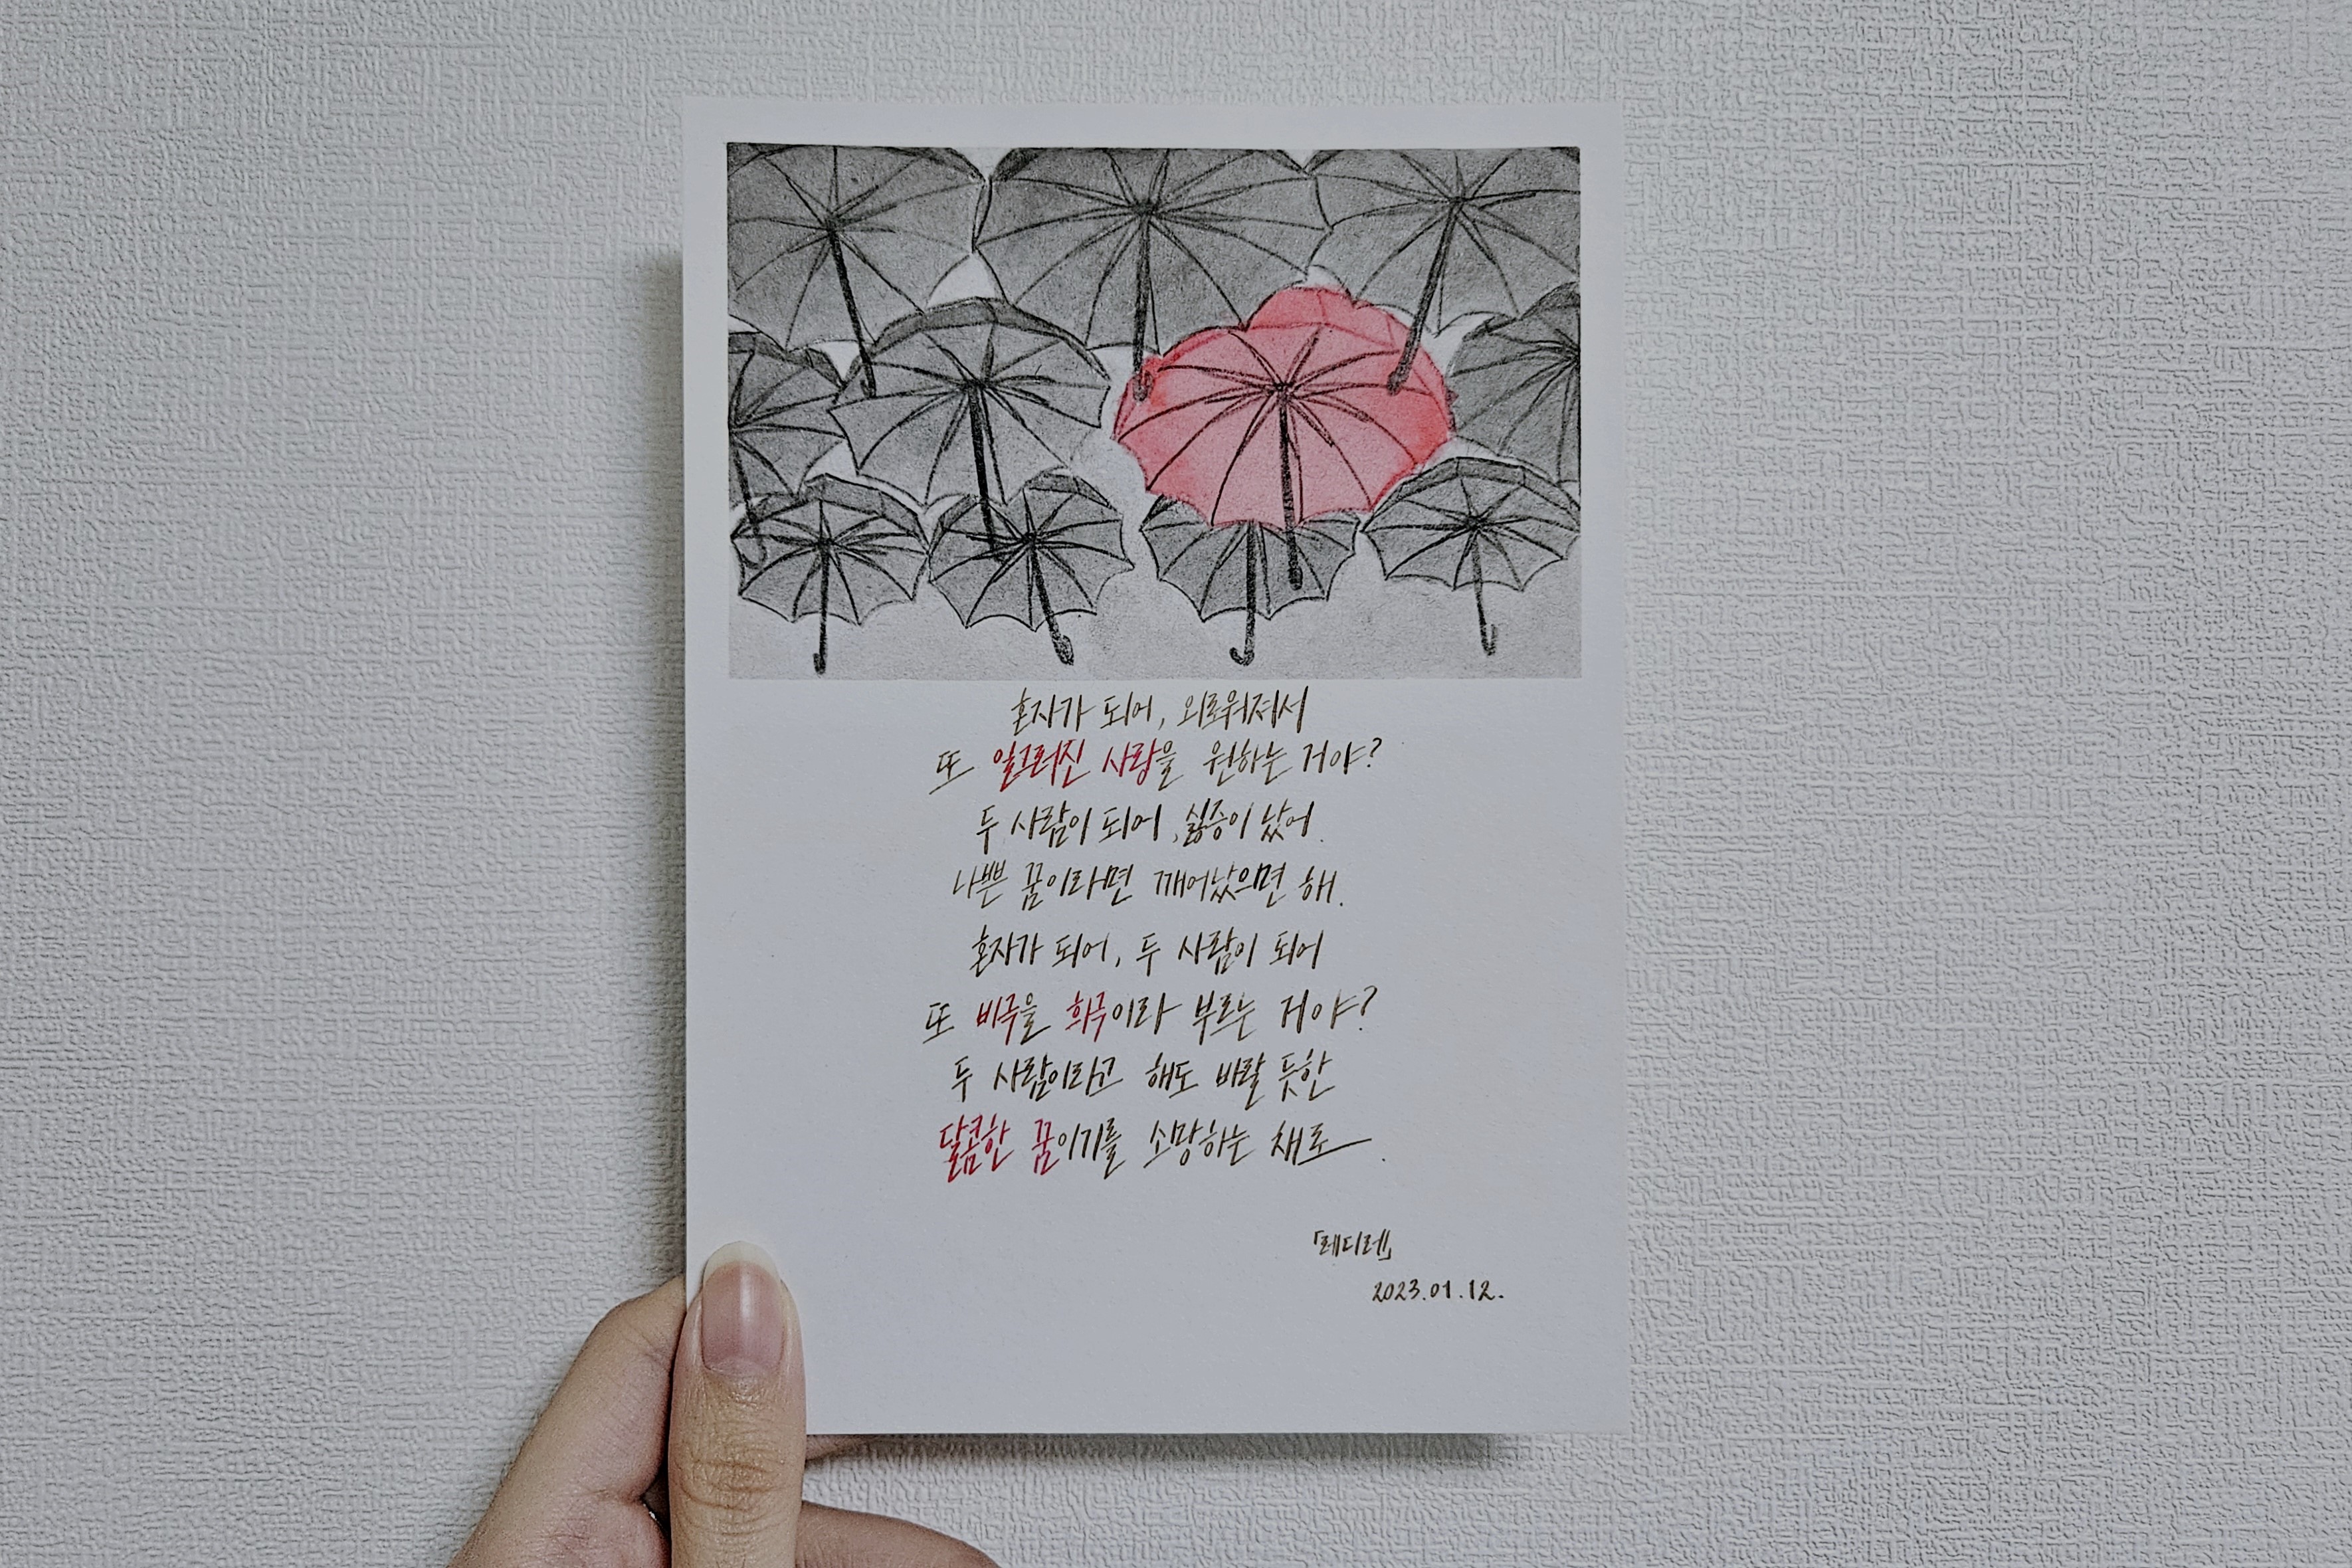 혼자가 되어, 외로워져서
또 일그러진 사랑을 원하는 거야?
두 사람이 되어, 싫증이 났어.
나쁜 꿈이라면 깨어났으면 해.
혼자가 되어, 두 사람이 되어
또 비극을 희극이라 부르는 거야?
두 사람이라고 해도 바랄 듯한
달콤한 꿈이기를 소망하는 채로.
「레디레」
2023.01.12.